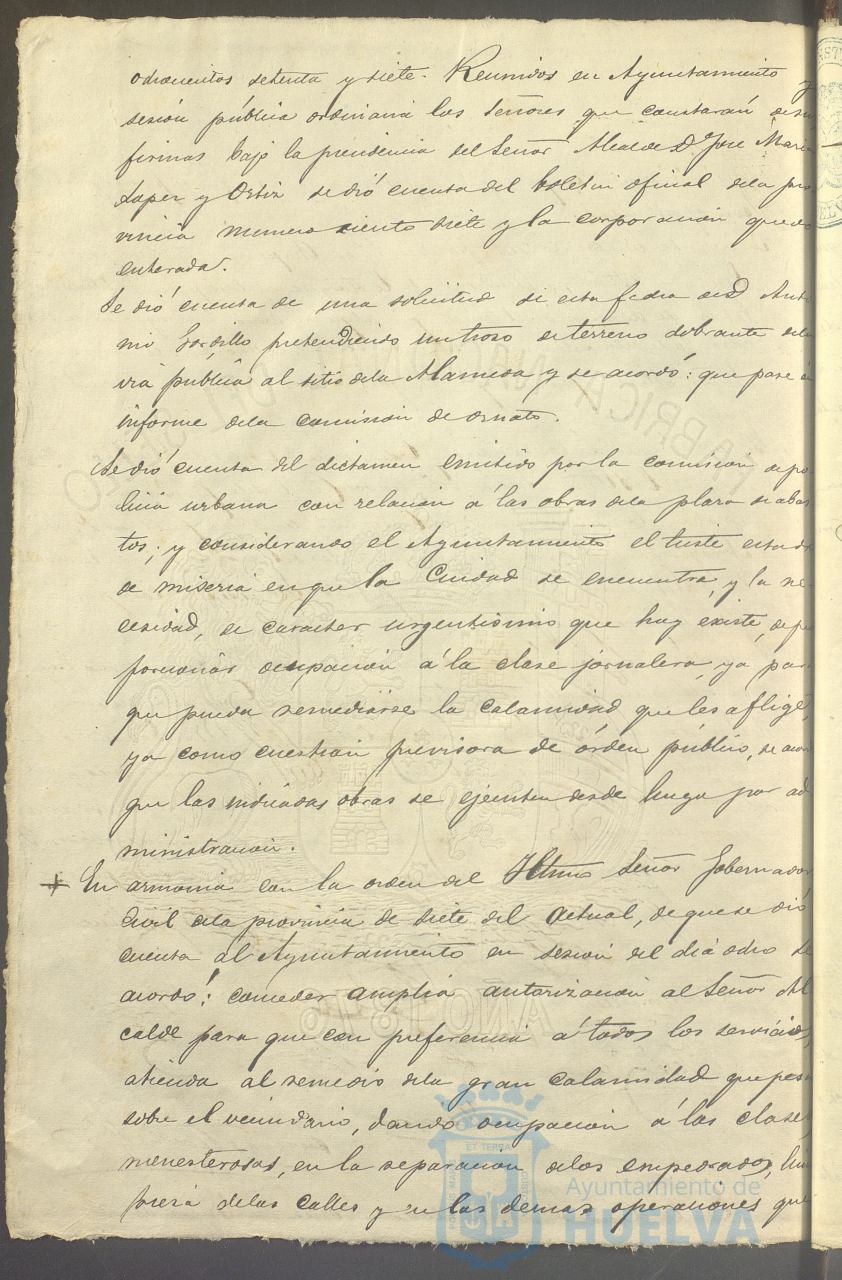 ochocientos setenta y siete. Reunidos en Ayuntamiento y
sesión pública ordinaria los Señores que constarán de sus
firmas bajo la presidencia del Señor Alcalde D. Jose Maria
Lopez y Ortiz se dió cuenta del boletin oficial dela pro
vincia numero ciento siete y la corporacion quedó
enterada.
Se dió cuenta de una solicitud de esta fecha de D. Anto
nio Gordillo pretendiendo un troso de terreno sobrante dela
via pública al sitio dela Alameda y se acordó: que pase á
informe dela comision de ornato.
Se dió cuenta del dictamen emitido por la comision de po
licia urbana con relacion á las obras dela plaza de abas
tos; y considerando el Ayuntamiento el triste estado
de miseria en que la Ciudad se encuentra, y la ne
cesidad, de caracter urgentisimo que hoy existe, de pro
porcionar ocupacion á la clase jornalera, ya para
que pueda remediarse la calamidad que les aflige,
ya como cuestion previsora de órden público, se acor
que las indicadas obras se ejecuten desde luego por ad
ministracion.
+ En armonia con la orden del Iltmo Señor Gobernador
Civil dela provincia de siete del actual, de que se dió
cuenta al Ayuntamiento en sesion del dia ocho se
acordó: conceder amplia autorizacion al Señor Al
calde para que con preferencia á todos los servicios,
atienda al remedio dela gran calamidad que pesa
sobre el vecindario, dando ocupacion á las clases
menesterosas, en la reparacion delos empedrados, lim
pieza delas calles y en las demas operaciones que
Ayuntamiento de
HUELVA